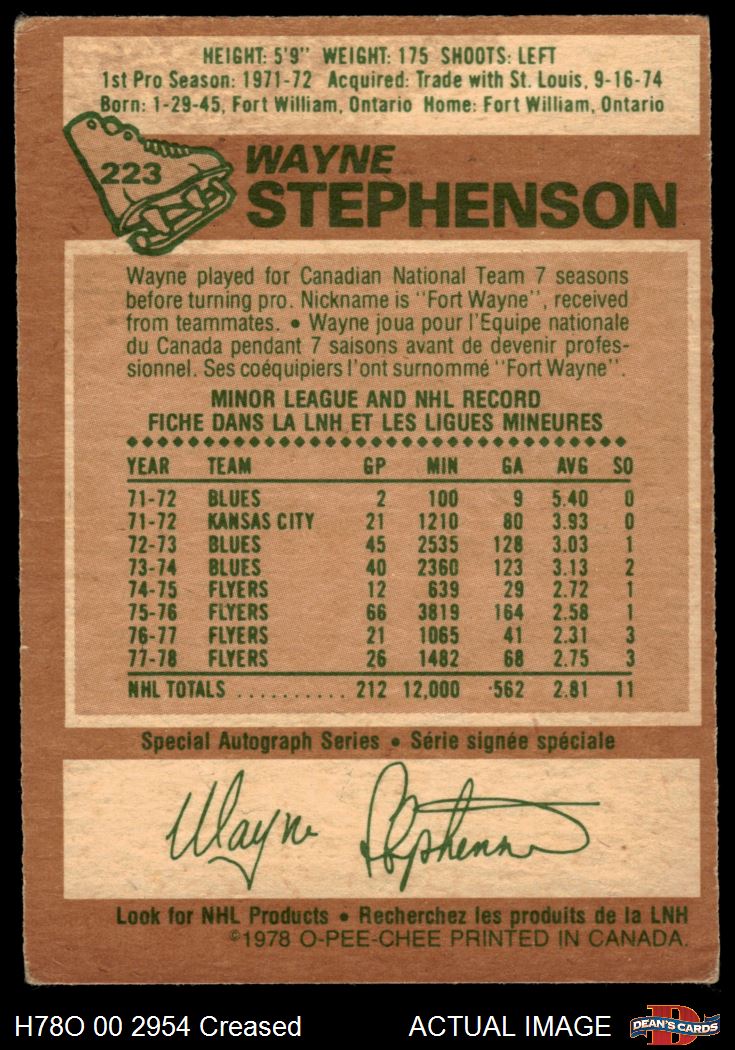 HEIGHT: 5'9" WEIGHT: 175 SHOOTS: LEFT
1st Pro Season: 1971-72 Acquired: Trade with St. Louis, 9-16-74
Born: 1-29-45, Fort William, Ontario Home: Fort William, Ontario
223
WAYNE
STEPHENSON
Wayne played for Canadian National Team 7 seasons
before turning pro. Nickname is "Fort Wayne", received
from teammates. • Wayne joua pour l'Equipe nationale
du Canada pendant 7 saisons avant de devenir profes-
sionnel. Ses coéquipiers l'ont surnommé "Fort Wayne".
MINOR LEAGUE AND NHL RECORD
FICHE DANS LA LNH ET LES LIGUES MINEURES
YEAR TEAM GP MIN GA AVG SO
71-72 BLUES 2 100 9 5.40 0
71-72 KANSAS CITY 21 1210 80 3.93 0
72-73 BLUES 45 2535 128 3.03 1
73-74 BLUES 40 2360 123 3.13 2
74-75 FLYERS 12 639 29 2.72 1
75-76 FLYERS 66 3819 164 2.58 1
76-77 FLYERS 21 1065 41 2.31 3
77-78 FLYERS 26 1482 68 2.75 3
NHL TOTALS .......... 212 12,000 562 2.81 11
Special Autograph Series • Série signée spéciale
Wayne Stephenson
Look for NHL Products • Recherchez les produits de la LNH
©1978 O-PEE-CHEE PRINTED IN CANADA.
H78O 00 2954 Creased ACTUAL IMAGE DEAN'S CARDS